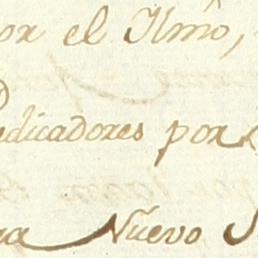 por el Ilmõ,
edicadores por
ra Nuevo S